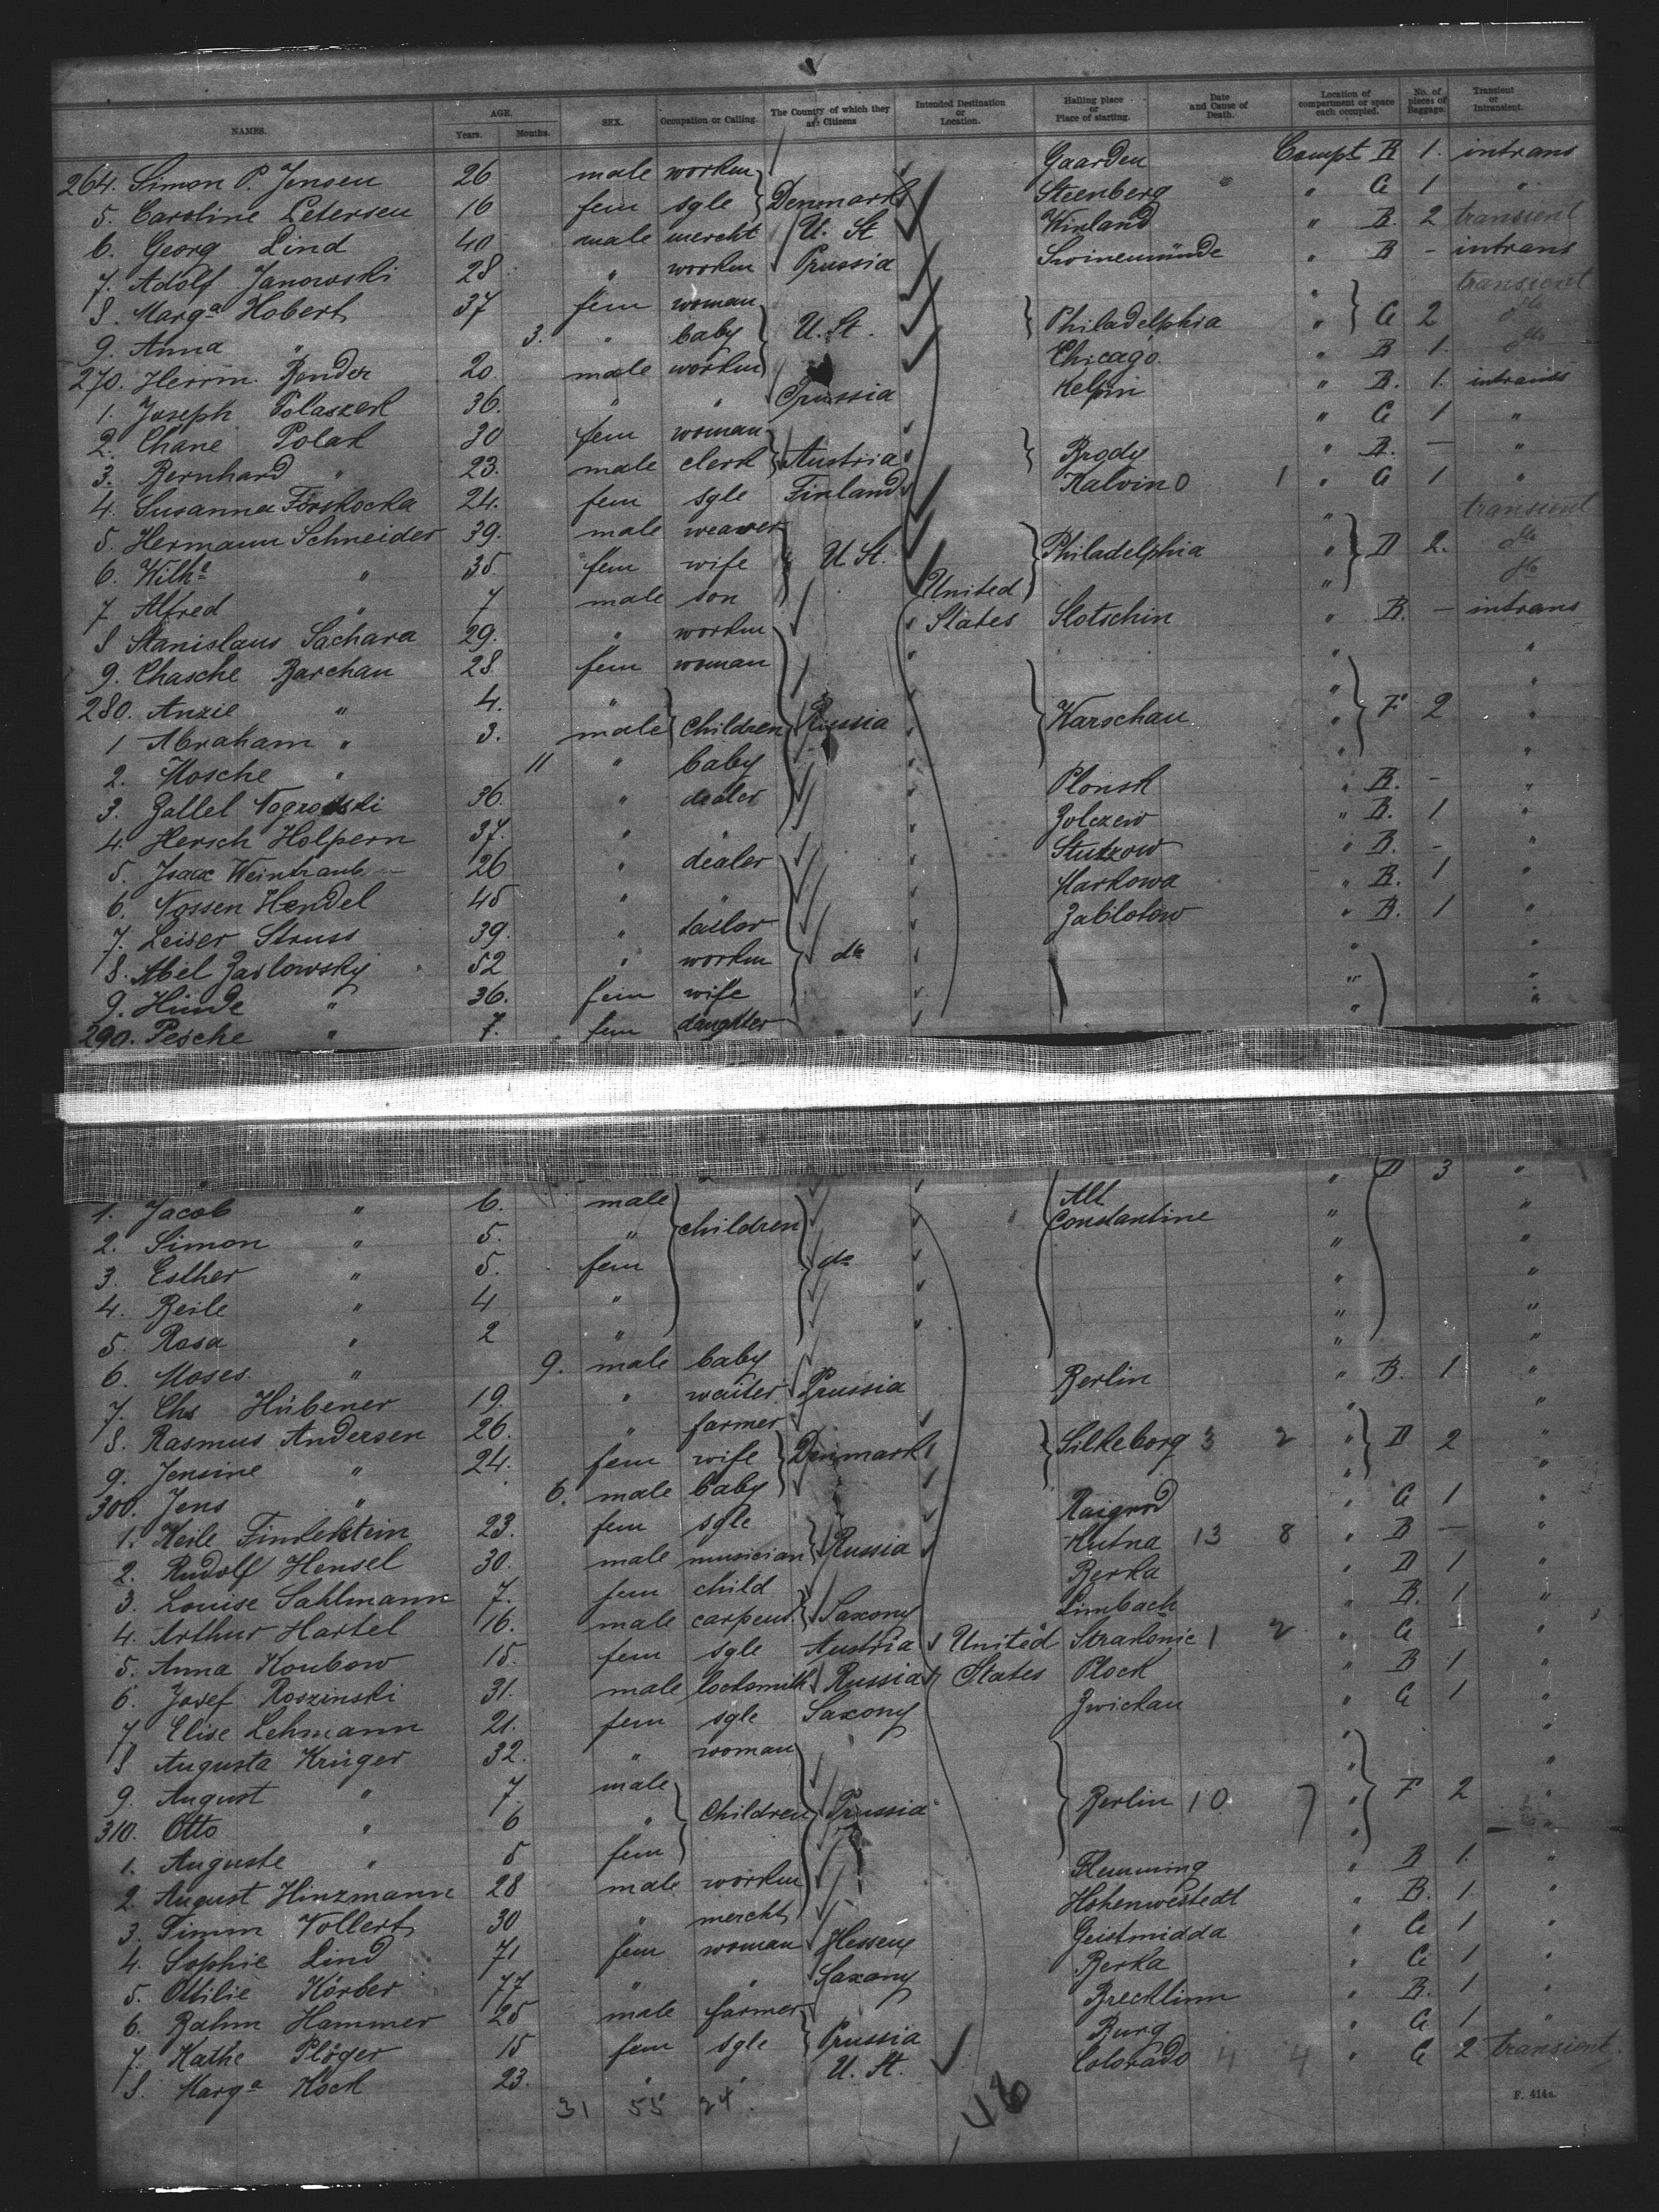 NAMES. AGE. Years. Months. SEX. Occupation or Calling. The Country of which they are Citizens Intended Destination or Location. Hailing place or Place of starting. Date and Cause of Death. Location of compartment or space each occupied. No. of pieces of Baggage. Transient or Intransient.
264. Simon P. Jensen 26 male workm Gaarden Compt B 1. intrans
5. Caroline Petersen 16 fem sgle Denmark Steenberg " C 1 "
6. Georg Lind 40 male mercht U. St Winland " B. 2 transient
7. Adolf Janowski 28 " workm Prussia Swinemünde " B - intrans
8. Marga Hobert 37 fem woman " transient
9. Anna " 3. " baby U. St. Philadelphia " C 2 do
270. Herrm. Bender 20 male workm Chicago " B 1. do
1. Joseph Polaszek 36. " " Prussia Kelpin " B. 1. intrans
2. Chane Polak 30 fem woman " C 1 "
3. Bernhard " 23. male clerk Austria Brody " B. - "
4. Susanna Forskocka 24. fem sgle Finland Kalvino 1 " C 1 "
5. Hermann Schneider 39. male weaver " transient
6. Wilhe " 35. fem wife U. St. Philadelphia " D 2. do
7. Alfred " 7 male son United " do
8 Stanislaus Sachara 29. " workm States Slotschin " B. - intrans
9. Chasche Barchau 28 fem woman " "
280. Anzie " 4. " " "
1 Abraham " 3. male children Russia Warschau " F 2 "
2. Mosche " 11 " baby " "
3. Zallel 36. " dealer Plonsk " B. - "
4. Hersch Holpern 37. " " Zolczew " B. 1 "
5. Isaac Weintraub 26 " dealer Stutzow " B. - "
6. Nossen Hendel 45 " " Markowa " B. 1 "
7. Leiser Struss 39. " tailor Zablotow " B. 1 "
8. Abel Zaslowsky 52 " workm do " "
9. Hinde " 36. fem wife " "
290. Pesche " 7. fem daughter " "
D 3 "
1. Jacob " 6. male Alt " "
2. Simon " 5. " children Constantine " "
3. Esther " 5. fem do " "
4. Beile " 4 " " "
5. Rosa " 2 " " "
6. Moses " 9. male baby " "
7. Chs Hübener 19. " waiter Prussia Berlin " B. 1 "
8. Rasmus Andersen 26. " farmer " "
9. Jensine " 24. fem wife Denmark Silkeborg 3 2 " D 2 "
300. Jens " 6. male baby " "
1. Keile Finkelstein 23. fem sgle Raigrod " C 1 "
2. Rudolf Hensel 30. male musician Russia Kutna 13 8 " B - "
3. Louise Sahlmann 7. fem child Berka " D 1 "
4. Arthur Hartel 16. male carpent. Saxony Limbach " B. 1 "
5. Anna Koubow 15. fem sgle Austria United Strakonic 1 2 " C - "
6. Josef Roszinski 31. male locksmith Russia States Plock " B 1 "
7 Elise Lehmann 21. fem sgle Saxony Zwickau " C 1 "
8 Augusta Krüger 32. " woman " "
9. August " 7 male " "
310. Otto " 6 " children Prussia Berlin 10. 7 " F 2 "
1. Auguste " 5 fem " "
2. August Hinzmann 28 male workm Flemming " B 1. "
3. Timm Vollert 30 " mercht Hohenwestedt " B. 1. "
4. Sophie Lind 71 fem woman Hessen Geistmidda " C 1 "
5. Ottilie Körber 77 " " Saxony Berka " C 1 "
6. Bahm Hammer 25 male farmer Brecklinn " B. 1 "
7. Kathe Plöger 15 fem sgle Prussia Burg " C 1 "
8. Marga Hock 23. " " U. St. Colorado 4 4 " C 2 transient
31 55 24.
F. 414a.